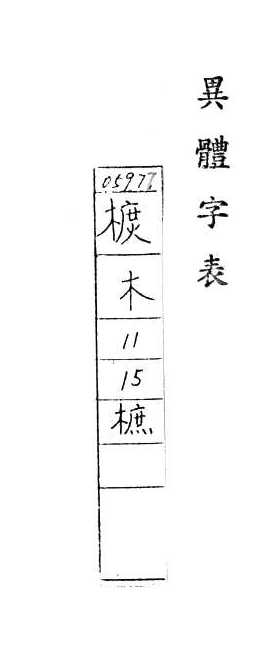 異體字表
05977
木
11
15
樜